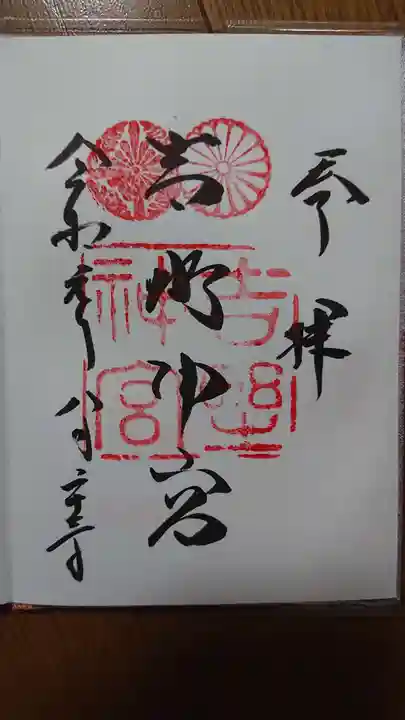 奉拝
吉野神宮
吉野神宮
令和元年八月二十三日